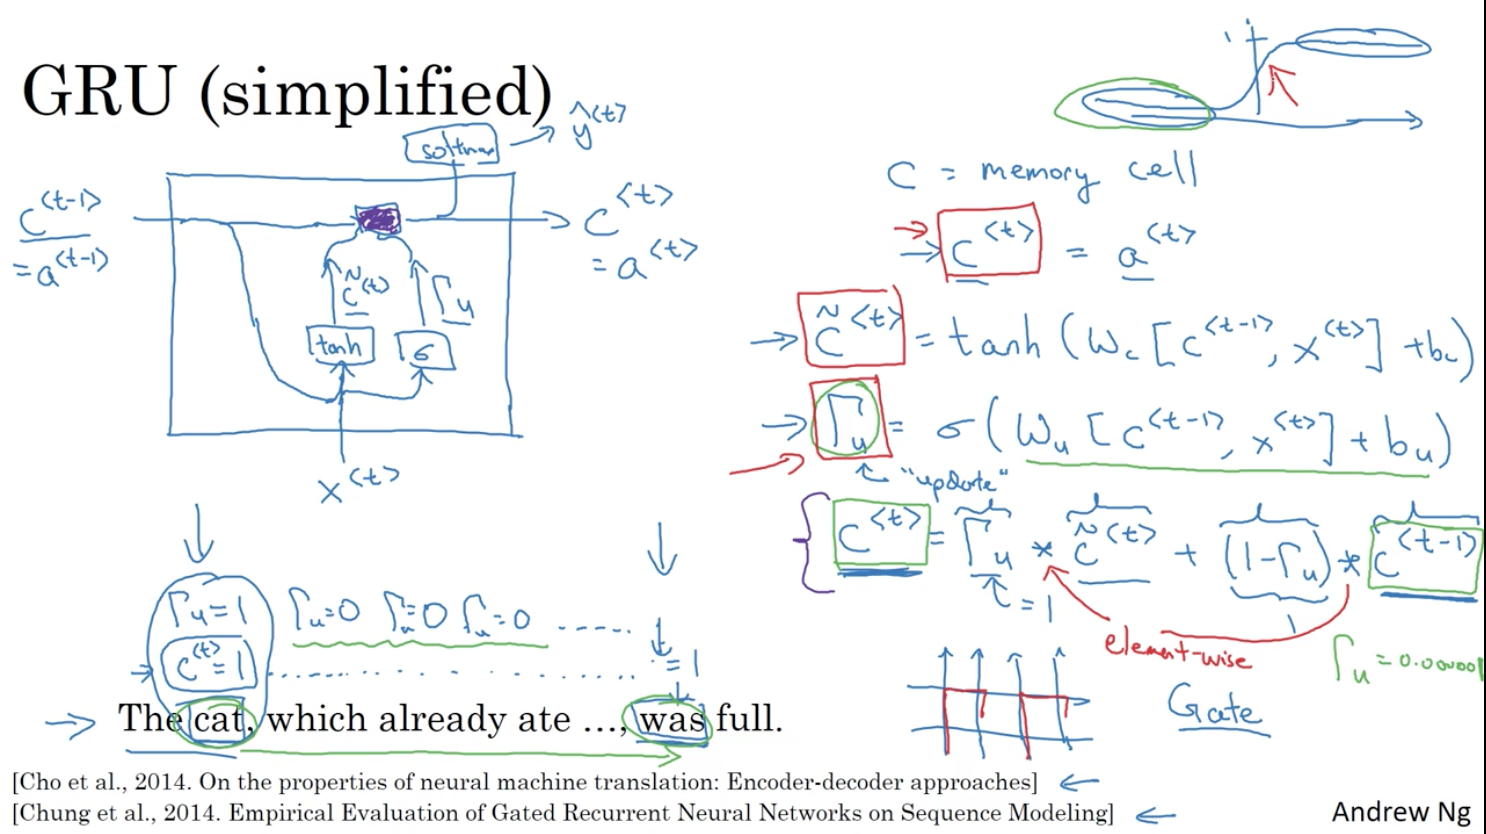 GRU (simplified)
softmax → ŷ^<t>
c^<t-1> = a^<t-1>
c^<t> = a^<t>
c̃^<t>
Γu
tanh
σ
x^<t>
1
c = memory cell
c^<t> = a^<t>
c̃^<t> = tanh(Wc[c^<t-1>, x^<t>] + bc)
Γu = σ(Wu[c^<t-1>, x^<t>] + bu)
"update"
c^<t> = Γu * c̃^<t> + (1-Γu) * c^<t-1>
= 1
1
element-wise
Γu = 0.000001
Gate
Γu=1 Γu=0 Γu=0 Γu=0 .....
c^<t>=1 ........ =1
The cat, which already ate …, was full.
[Cho et al., 2014. On the properties of neural machine translation: Encoder-decoder approaches] ←
[Chung et al., 2014. Empirical Evaluation of Gated Recurrent Neural Networks on Sequence Modeling] ←
Andrew Ng